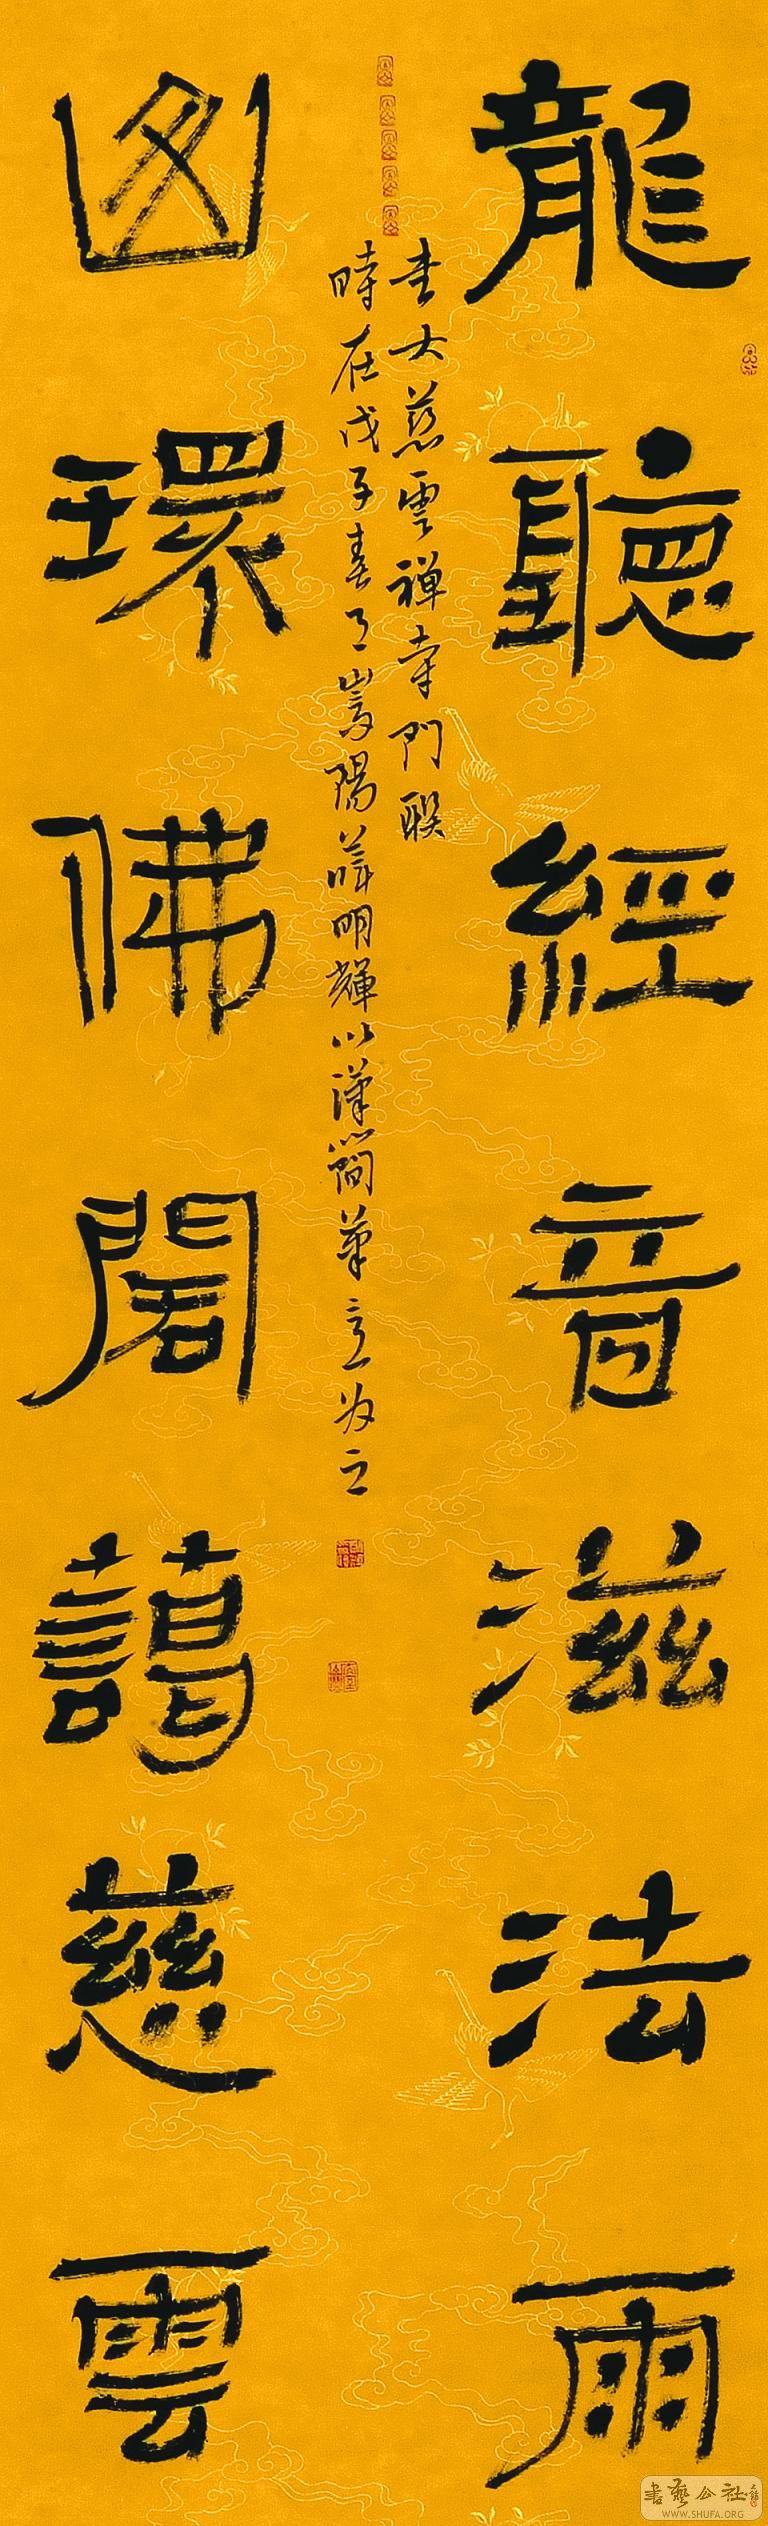 龍聽經音滋法雨
環佛閣藹慈雲
書大慈雲禪寺門聯
時在戊子春月嵩陽明輝以漢簡筆意為之
書藝公社
WWW.SHUFA.ORG